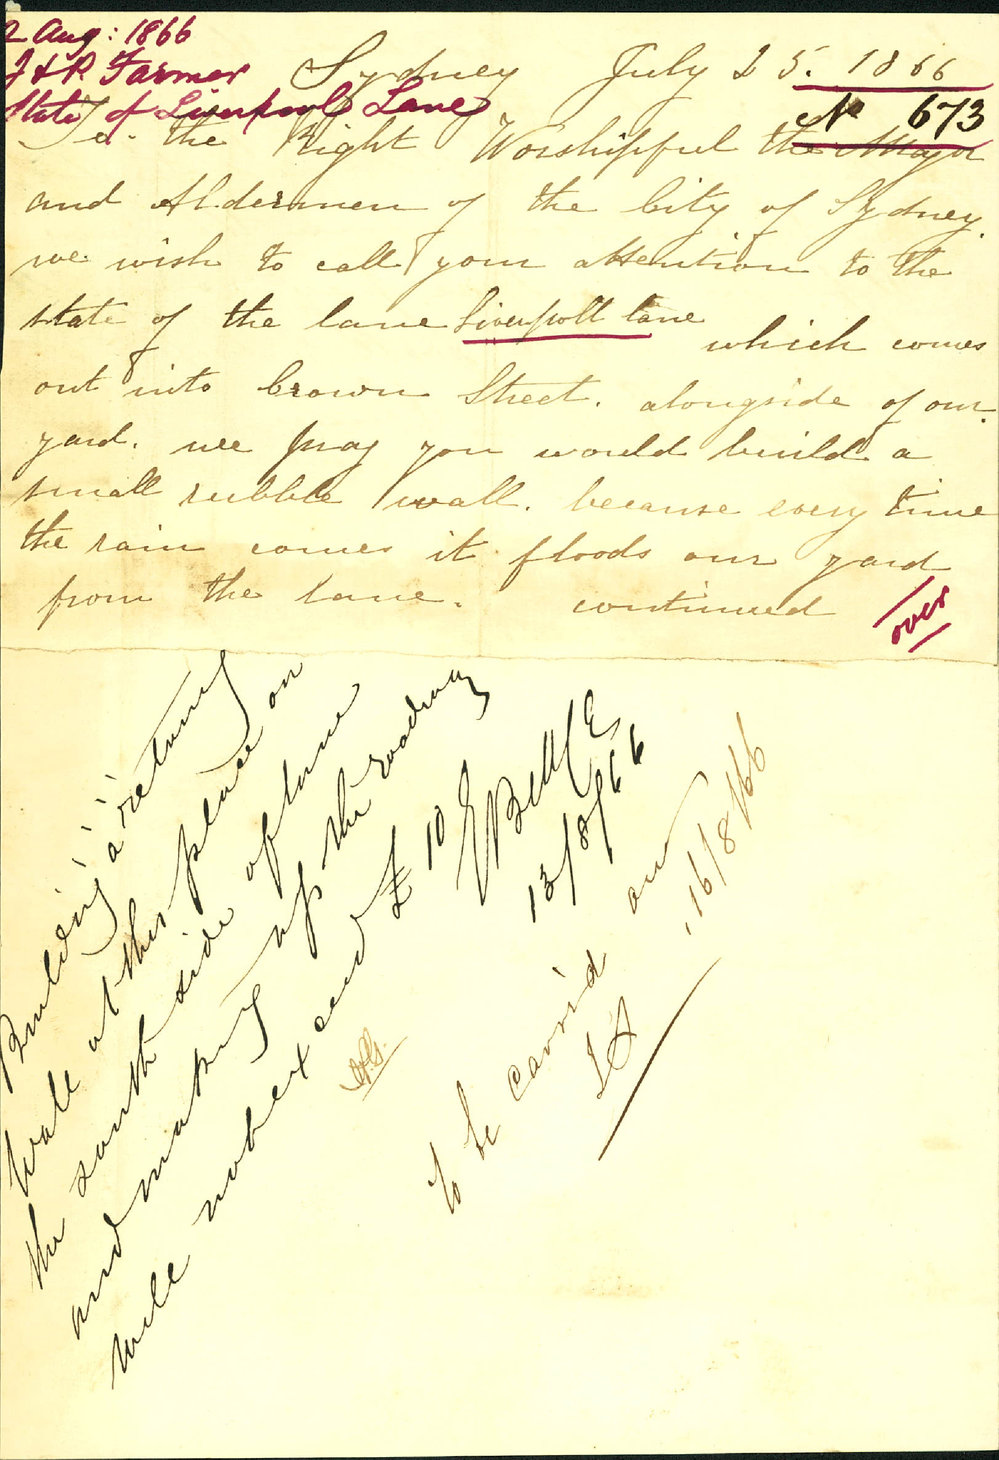 2 Aug: 1866
J & R. Farmer
State of Liverpool Lane
Sydney July 25. 1866
No 673
To. the Right Worshipful the Mayor
and Aldermen of the City of Sydney.
we wish to call your attention to the
state of the lane Liverpoll lane which comes
out into Crown Street. alongside of our.
yard. we pray you would build a
small rubble wall. because every time
the rain comes it floods our yard
from the lane. continued
over
Building a retaining
wall at this place on
the south side of lane
and making up the roadway
will not exceed £10
EBell CE
13/8/66
to be carrid out
16/8/66